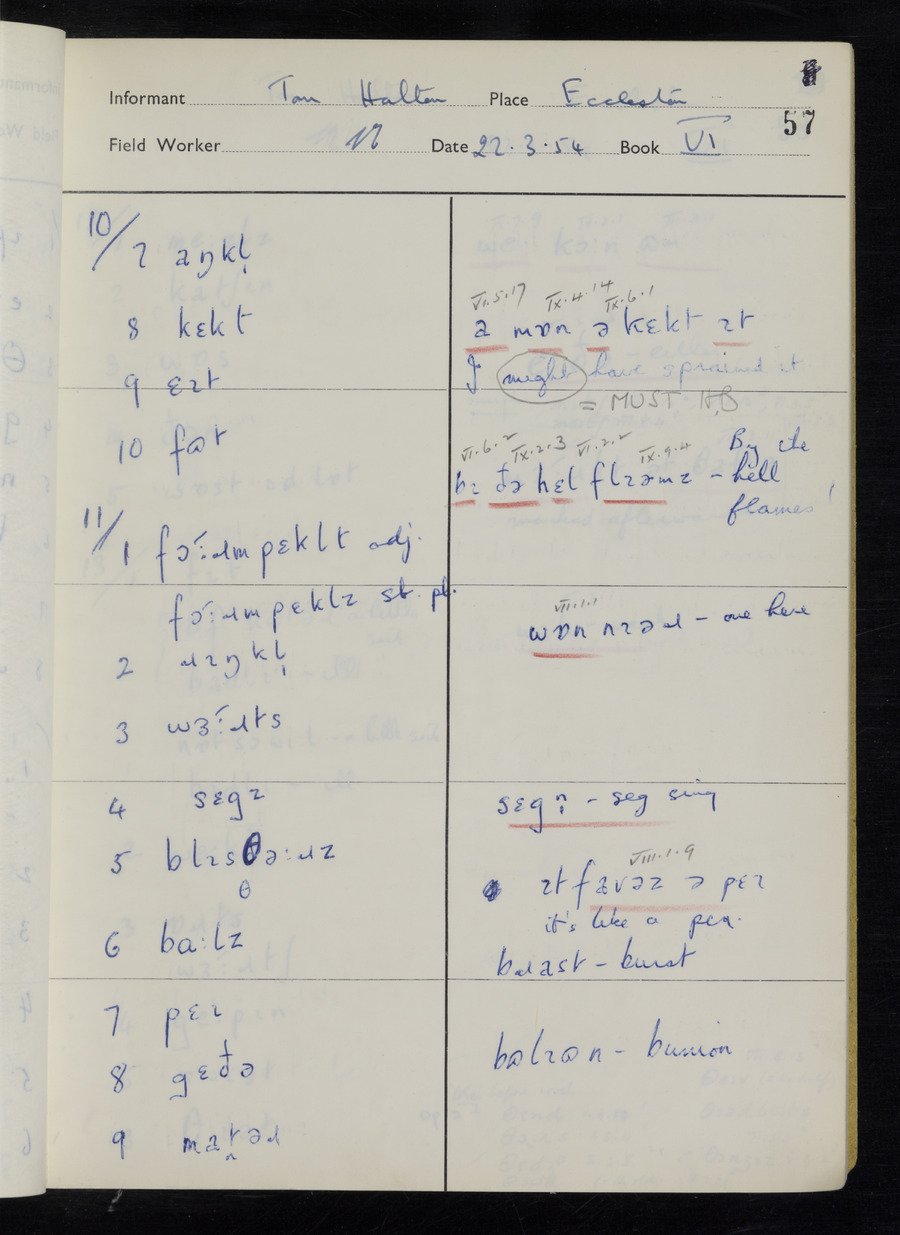 57
Informant Tom Halton Place Eccleston
Field Worker Date 22.3.54 Book VI
10/7 aŋkl̩
8 kɛkt
VI.5.17 IX.4.14 IX.6.1
a mɒn ə kɛkt ɪt
I might have sprained it
= MUST
9 ɛɪt
10 fɷt
VI.6.2 IX.2.3 VI.2.2 IX.9.4
bɪ ðə hɛl flɪəmz – By the hell flames!
11/1 fɔ:ɹmpɛklt adj.
fɔ:ɹmpɛklz sb. pl.
VII.1.1
wɒn nɪəɹ – one here
2 ɹɪŋkl̩
3 wɜ:ɹts
4 sɛgz
sɛgn̩ – seg sing
5 blɪsθə:ɹz
θ
VIII.1.9
ɪt favəz ə pɛɪ
it's like a pea.
6 ba:lz
bɹast – burst
7 pɛɪ
8 gɛðə
bɷlɪɷn – bunion
9 matəɹ